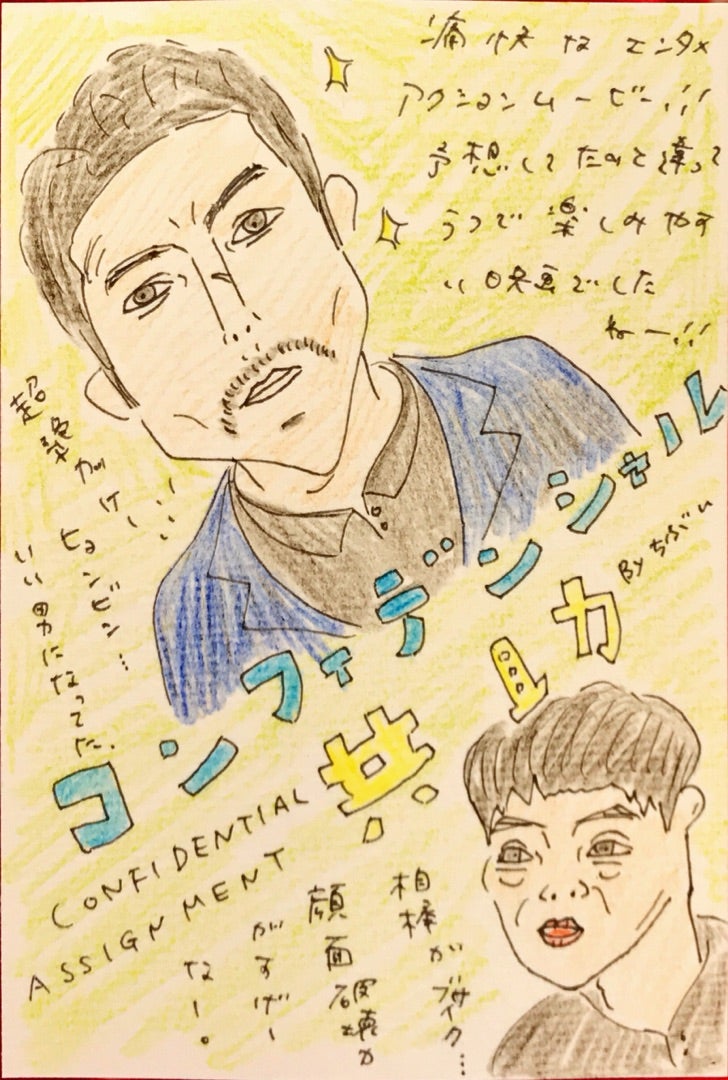 痛快なエンタメ
アクションムービー!!!
予想してたのと違って
ラフで楽しみやす
い映画でした
ねー!!!
超
ヒョンビン…
いい男になってた.
コンフィデンシャル
共助
By
CONFIDENTIAL
ASSIGNMENT
相棒がブサイク…
顔面破壊力
がすげー
なー。